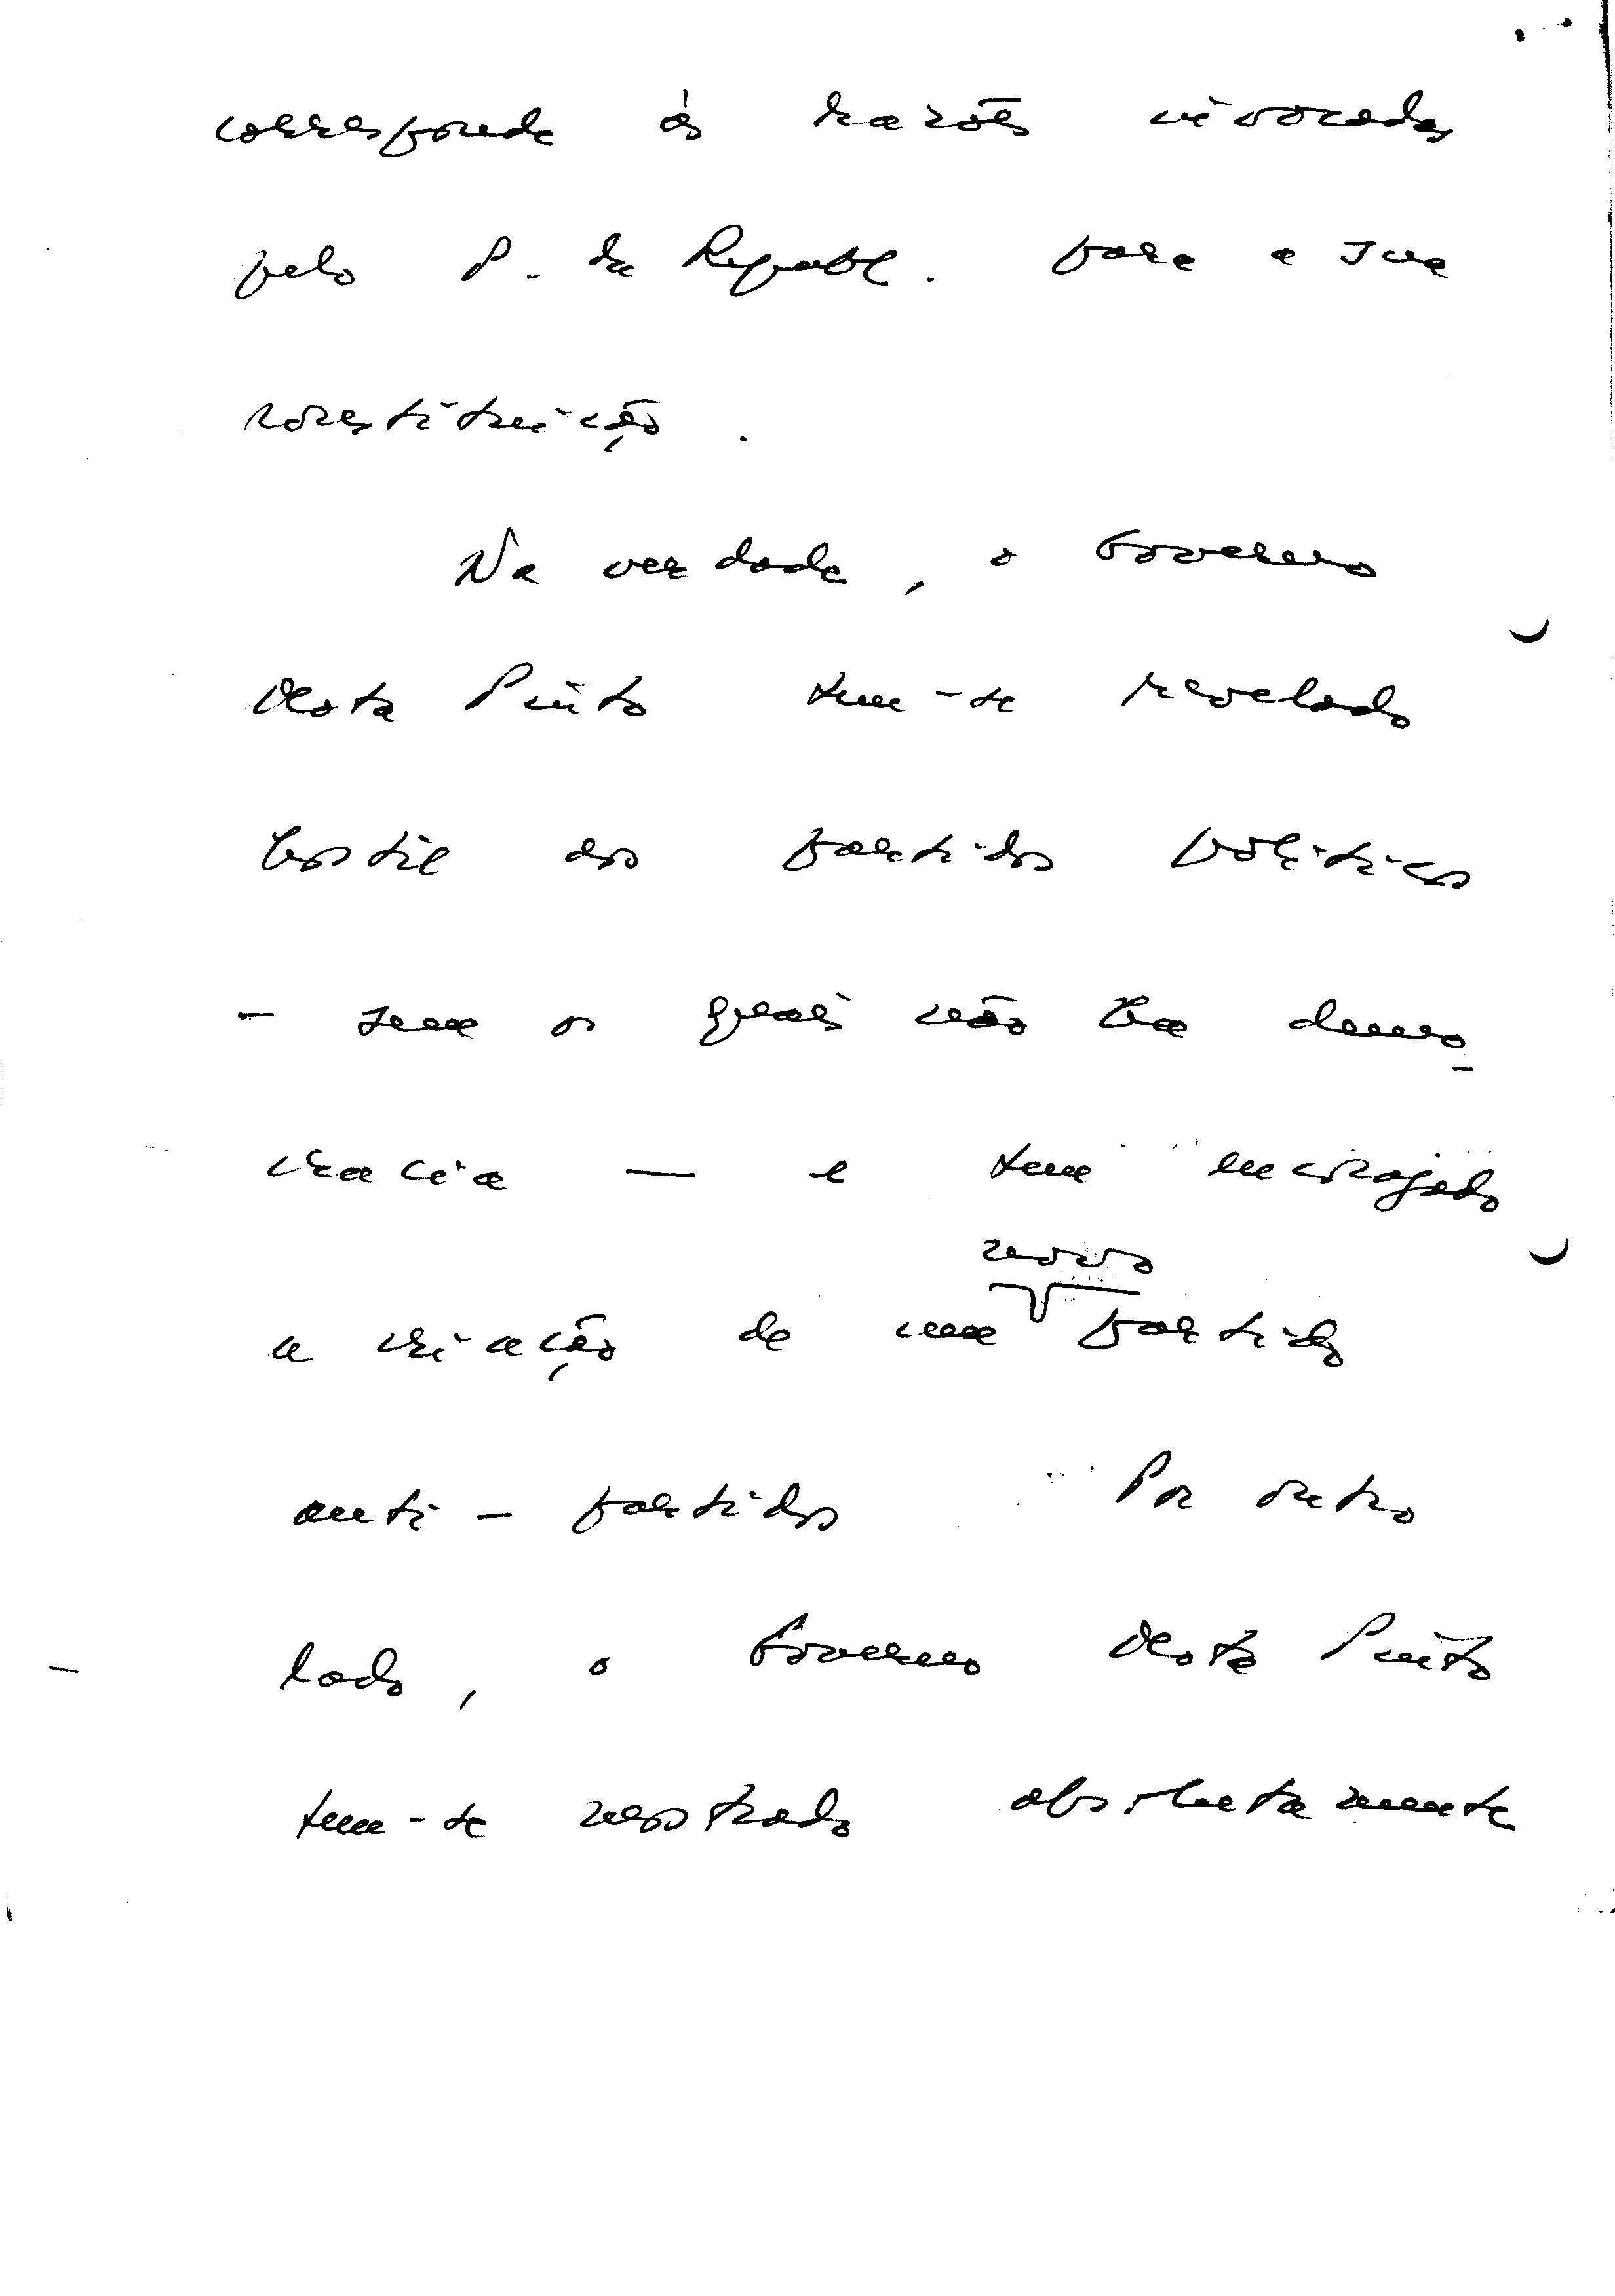 corresponde às razões invocadas
pelo P. da Republ. para a sua
constituição.
Na verdade, o Governo
Mota Pinto tem-se revelado
hostil aos partidos políticos
- sem os quais não há demo-
cracia — e tem encorajado
novo
a criação de um partido
anti-partidos Por outro
lado, o Governo Mota Pinto
tem-se mostrado absolutamente